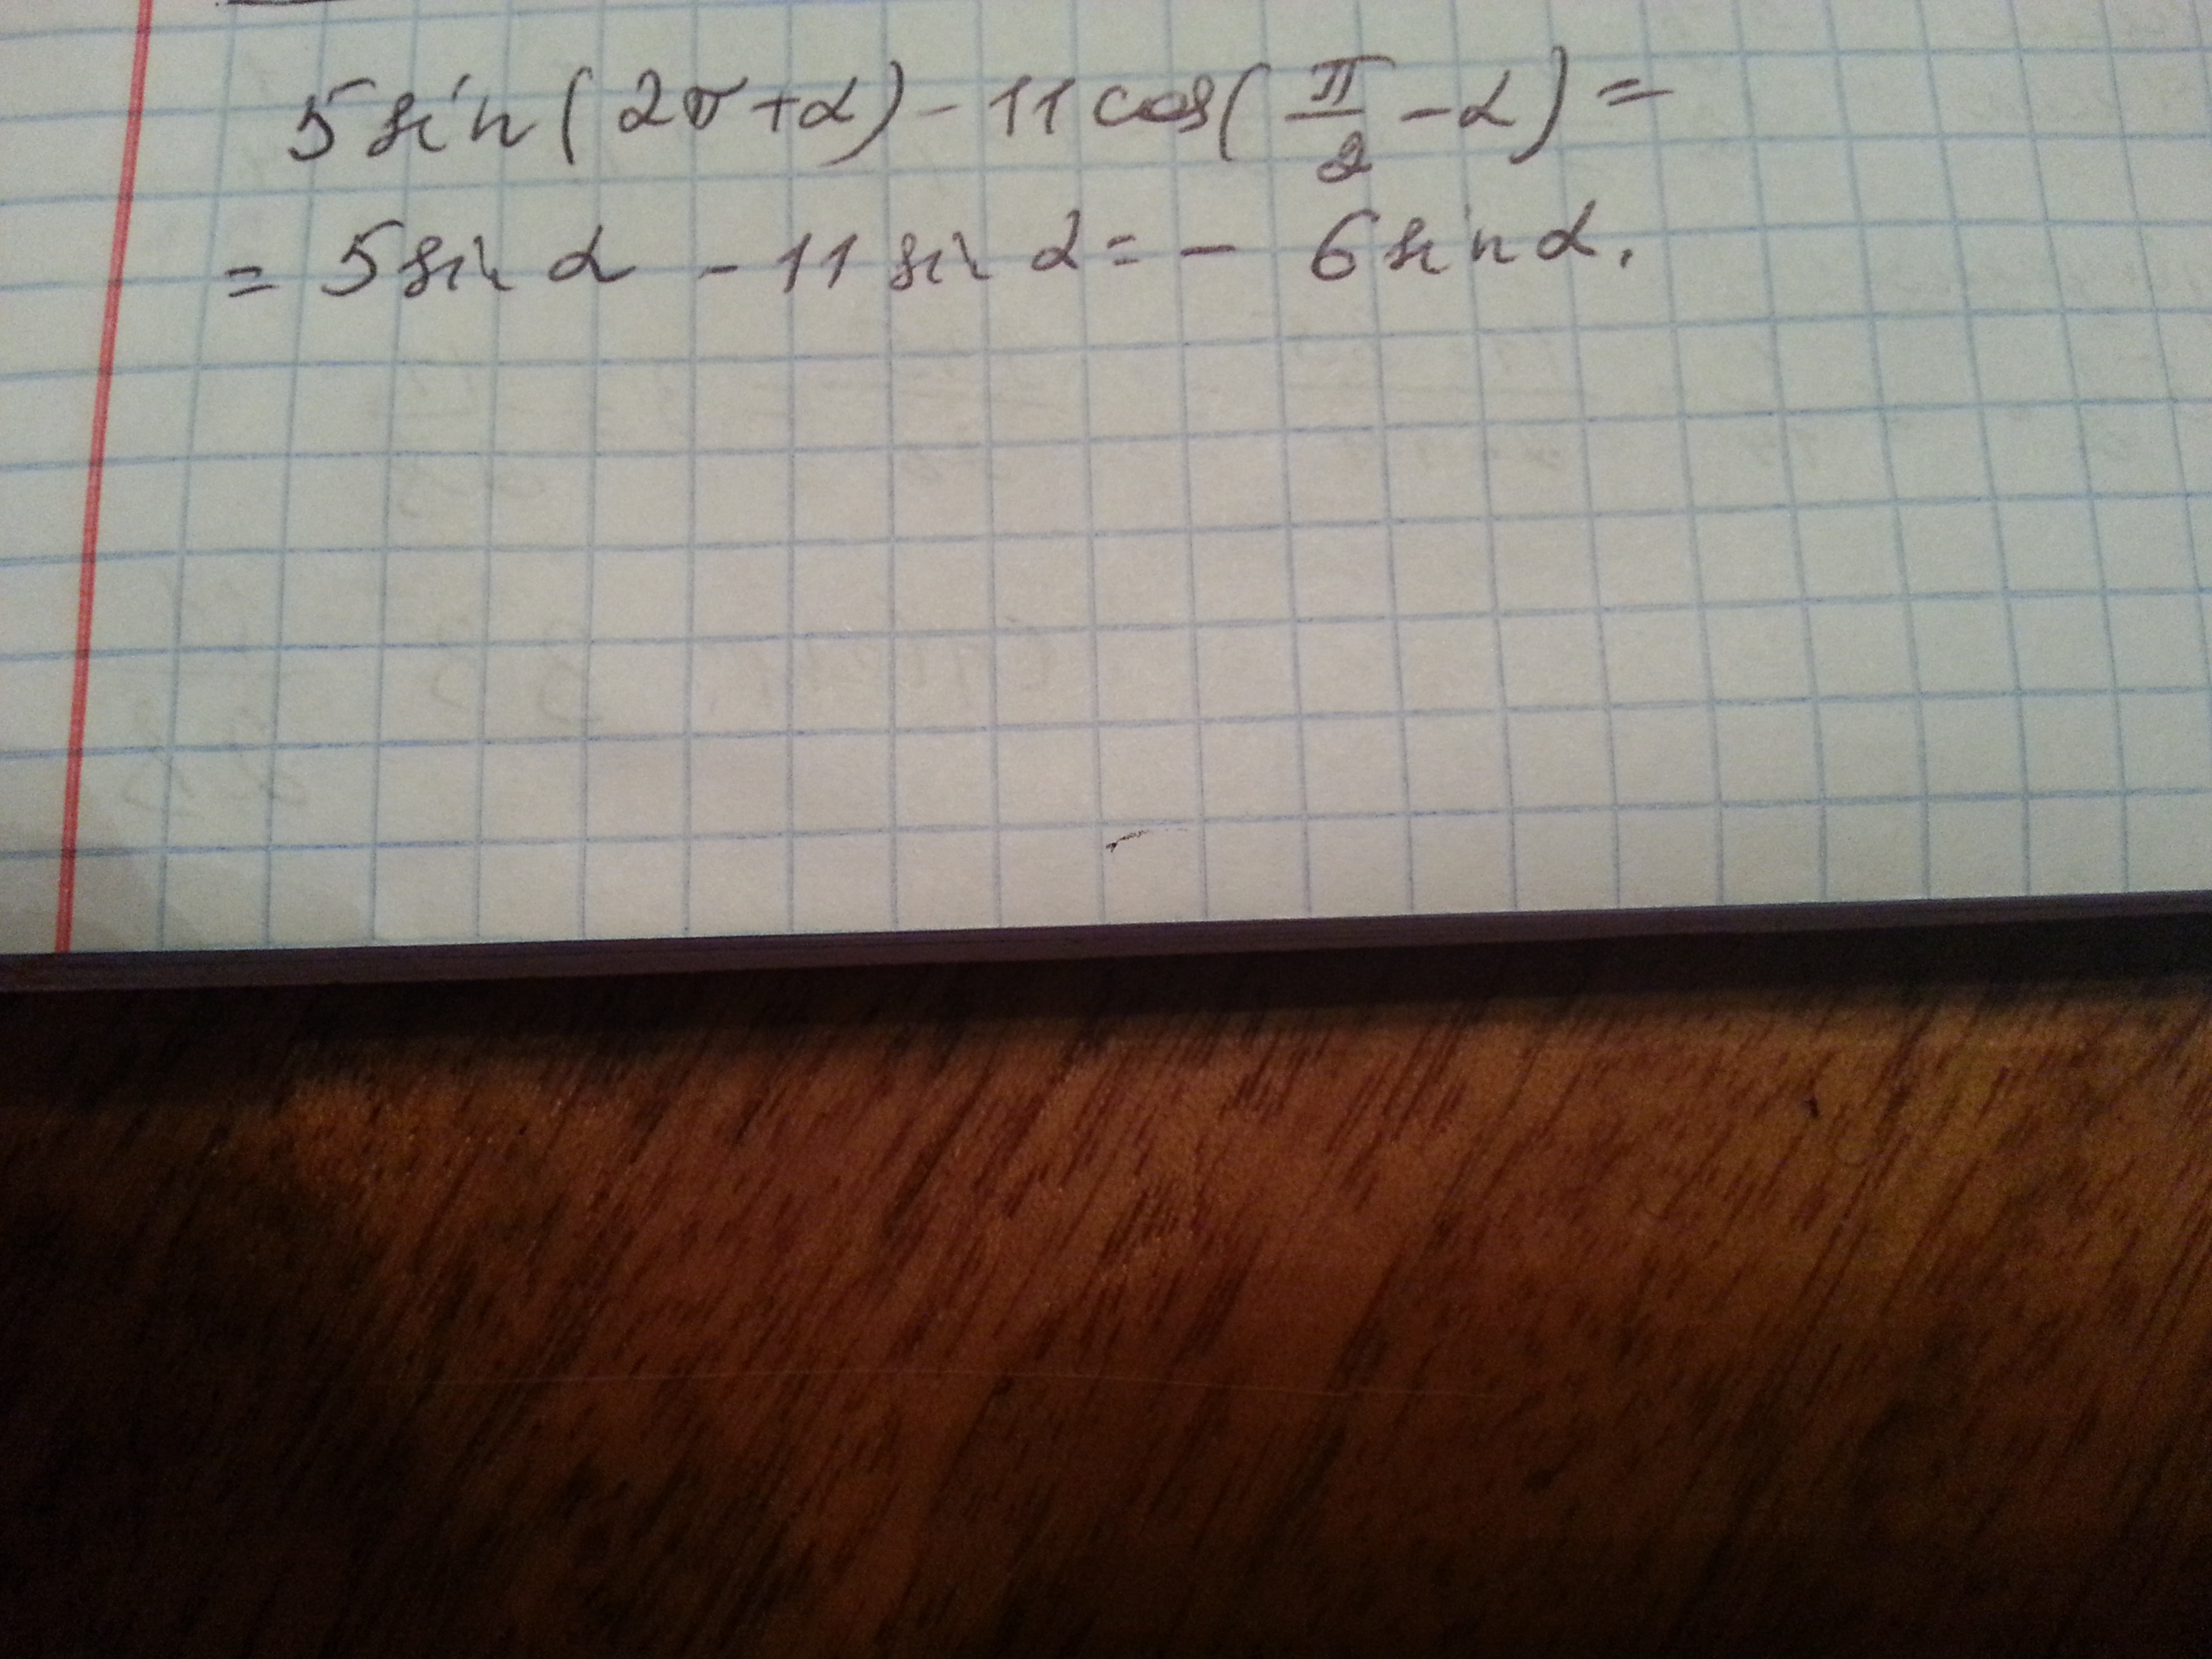 5 sin(2π+α) - 11 cos(π/2 - α) =
= 5 sin α - 11 sin α = - 6 sin α.